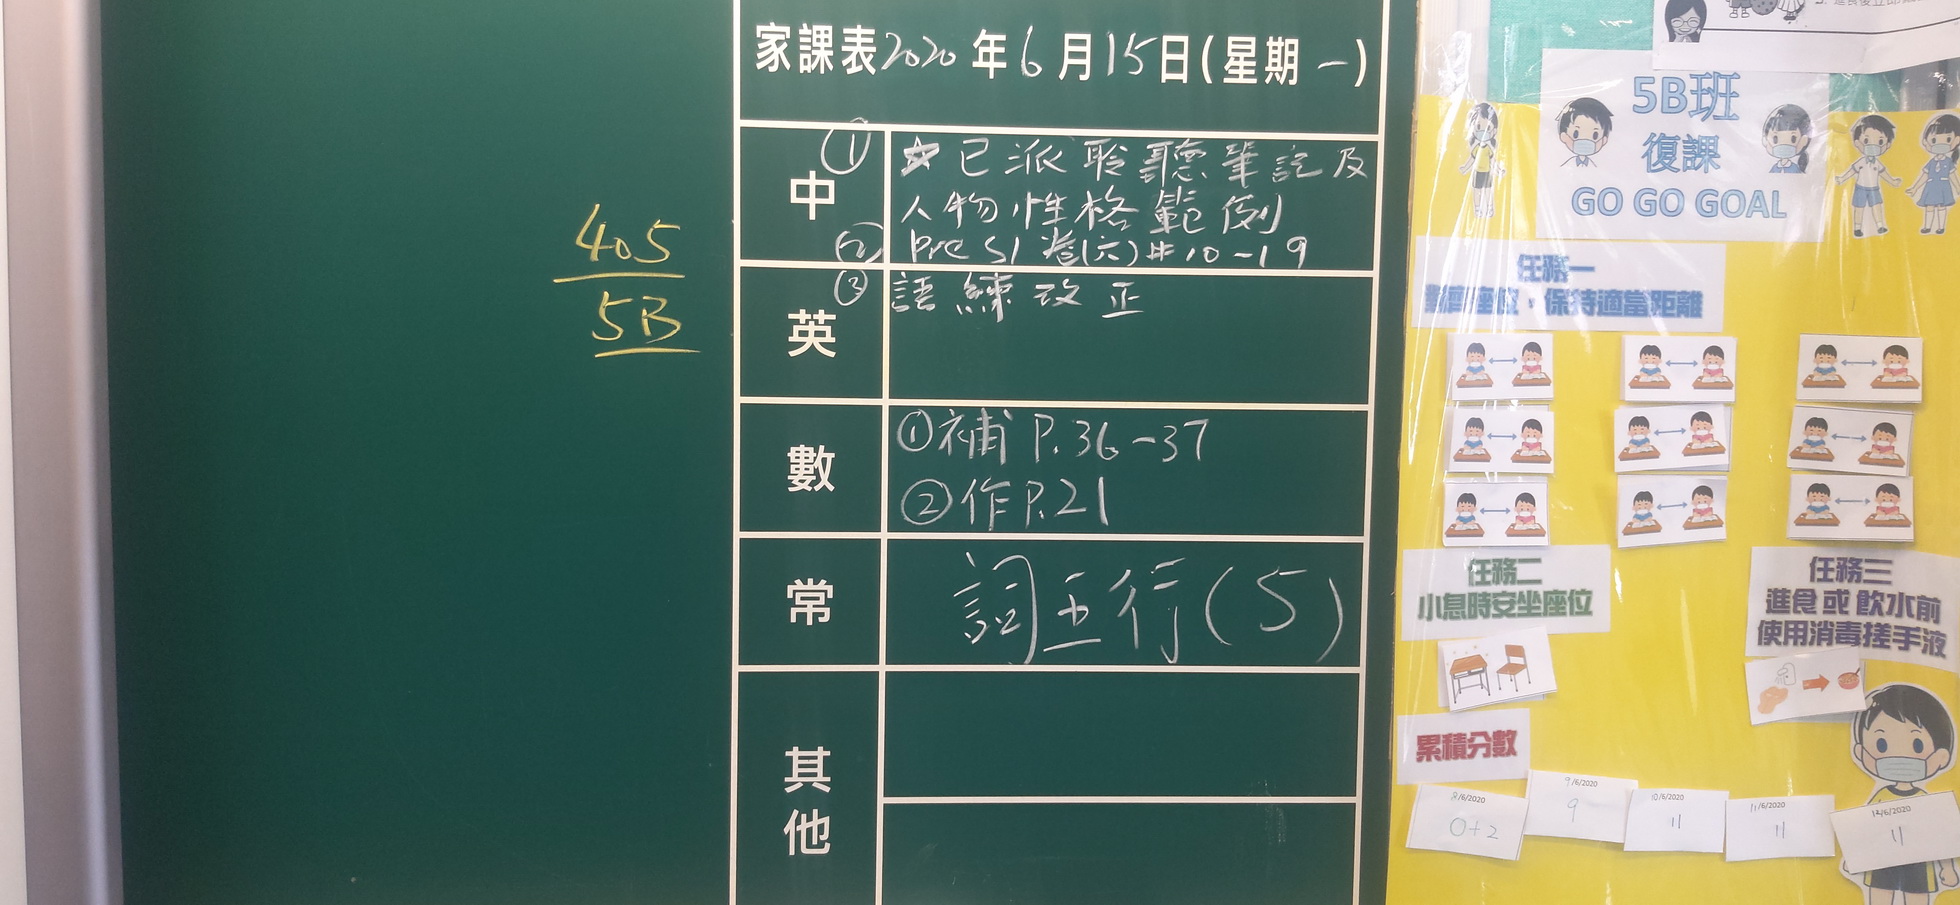 家課表2020年6月15日(星期一)
中
① ☆已派聆聽筆記及
人物性格範例
② Pre S1 卷(六)#10-19
英
③ 語練改正
數
①補P.36-37
②作P.21
常
詞五行(5)
其他
405
5B
5B班
復課
GO GO GOAL
任務一
保持適當距離
任務二
小息時安坐座位
任務三
進食或飲水前
使用消毒搓手液
累積分數
8/6/2020
0+2
9/6/2020
9
10/6/2020
11
11/6/2020
11
12/6/2020
11